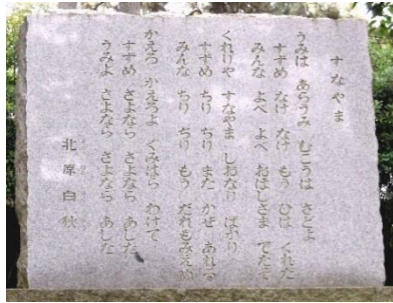 すなやま
うみは あらうみ むこうは さどよ
すずめ なけ なけ もう ひは くれた
みんな よべ よべ おほしさま でたぞ
くれりゃ すなやま しおなり ばかり
すずめ ちり ぢり また かぜ あれる
みんな ちり ぢり もう だれもみえぬ
かえろ かえろよ ぐみはら わけて
すずめ さよなら さよなら あした
うみよ さよなら さよなら あした
北原白秋